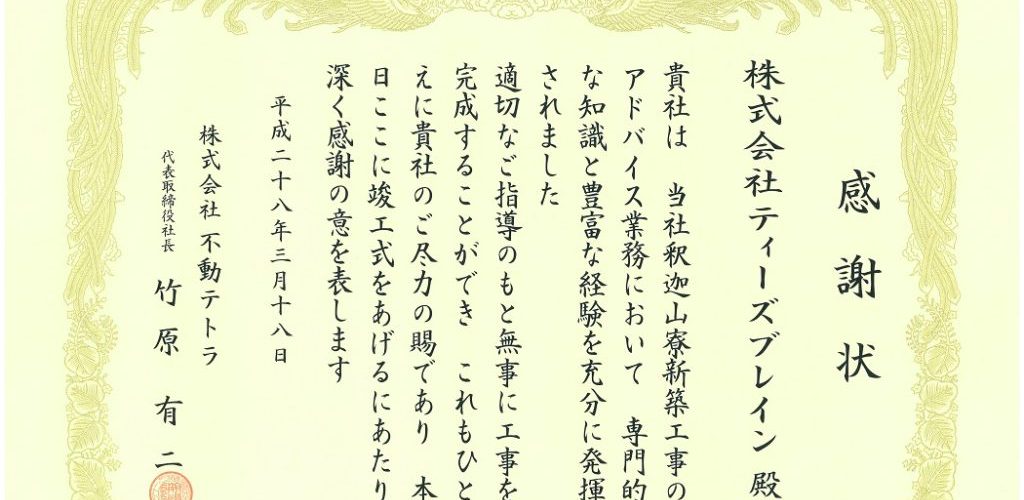 感謝状
株式会社ティーズブレイン 殿
貴社は 当社釈迦山寮新築工事の
アドバイス業務において 専門的
な知識と豊富な経験を充分に発揮
されました
適切なご指導のもと無事に工事を
完成することができ これもひと
えに貴社のご尽力の賜であり 本
日ここに竣工式をあげるにあたり
深く感謝の意を表します
平成二十八年三月十八日
株式会社 不動テトラ
代表取締役社長 竹原有二